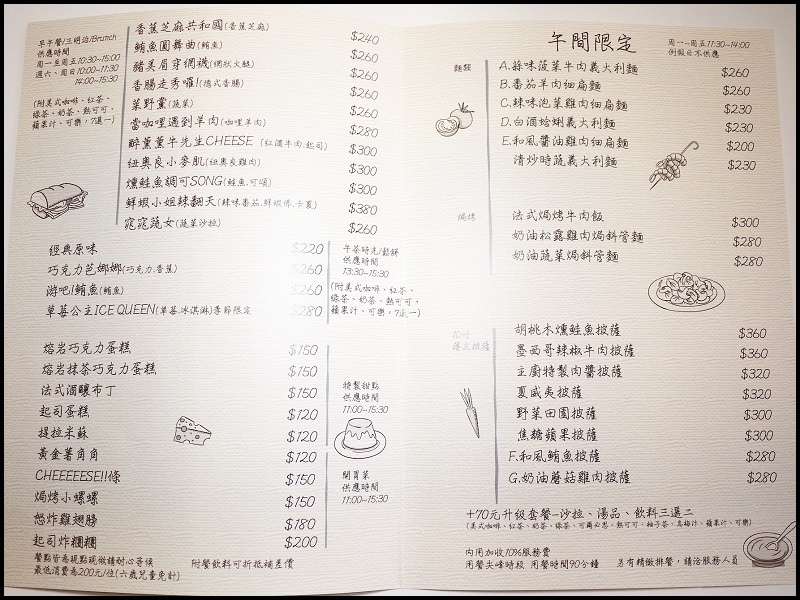 早午餐/三明治/Brunch
供應時間
周一至周五10:30~15:00
週六、周日10:00~11:30
14:00~15:30
(附美式咖啡、紅茶、
綠茶、奶茶、熱可可、
蘋果汁、可樂，7選一)
香蕉芝麻共和國(香蕉芝麻) $240
鮪魚圓舞曲(鮪魚) $260
豬美眉穿網襪(網狀火腿) $260
香腸走秀囉!(德式香腸) $260
菜野薰(蔬菜) $260
當咖哩遇到羊肉(咖哩羊肉) $280
醉薰薰牛先生CHEESE (紅酒牛肉.起司) $300
紐奧良小麥肌(紐奧良雞肉) $300
燻鮭魚調可SONG(鮭魚.可頌) $300
鮮蝦小姐辣翻天(辣味番茄.鮮蝦佛.卡夏) $380
窕窕蔬女(蔬菜沙拉) $260
經典原味 $220
巧克力芭娜娜(巧克力.香蕉) $260
游吧!鮪魚(鮪魚) $260
草莓公主ICE QUEEN(草莓.冰淇淋)季節限定 $280
午茶時光/鬆餅
供應時間
13:30~15:30
(附美式咖啡、紅茶、
綠茶、奶茶、熱可可、
蘋果汁、可樂，7選一)
熔岩巧克力蛋糕 $150
熔岩抹茶巧克力蛋糕 $150
法式酒釀布丁 $150
起司蛋糕 $120
提拉米蘇 $120
黃金薯角角 $120
CHEEEEESE!!條 $150
焗烤小螺螺 $150
怒炸雞翅膀 $180
起司炸糰糰 $200
特製甜點
供應時間
11:00~15:30
開胃菜
供應時間
11:00~15:30
餐點皆為現點現做請耐心等候
最低消費為200元/位(六歲兒童免計)
附餐飲料可折抵補差價
午間限定
周一~周五11:30~14:00
例假日不供應
麵類
A.蒜味菠菜牛肉義大利麵 $260
B.番茄羊肉細扁麵 $260
C.辣味泡菜雞肉細扁麵 $230
D.白酒蛤蜊義大利麵 $230
E.和風醬油雞肉細扁麵 $200
清炒時蔬義大利麵 $230
焗烤
法式焗烤牛肉飯 $300
奶油松露雞肉焗斜管麵 $280
奶油蔬菜焗斜管麵 $280
10吋
薄皮披薩
胡桃木燻鮭魚披薩 $360
墨西哥辣椒牛肉披薩 $360
主廚特製肉醬披薩 $320
夏威夷披薩 $320
野菜田園披薩 $300
焦糖蘋果披薩 $300
F.和風鮪魚披薩 $280
G.奶油蘑菇雞肉披薩 $280
+70元升級套餐-沙拉、湯品、飲料三選二
(美式咖啡、紅茶、奶茶、綠茶、可爾必思、熱可可、柚子茶、烏梅汁、蘋果汁、可樂)
內用加收10%服務費
用餐尖峰時段 用餐時間90分鐘
另有精緻排餐，請洽服務人員